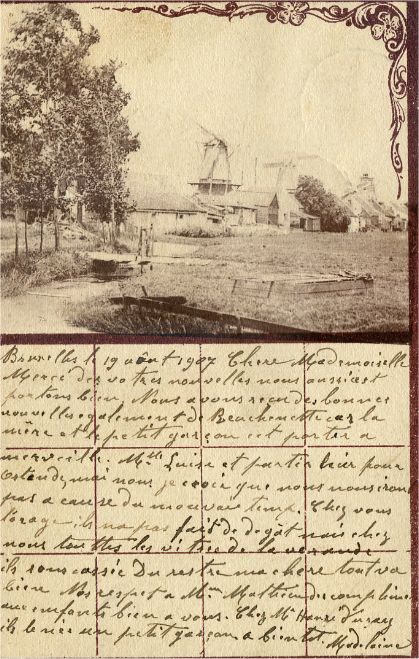 Bruxelles le 19 août 1907 Chere Mademoiselle
Merçe des votres nouvelles nous aussi est
portons bien. Nous avons reçu des bonnes
nouvelles egalement de car la
mère et le petit garçon est porter a
merveille. Mlle Luise et partier hier pour
Ostende, moi nous je croie que nous nous irons
pas a cause du mouvai temp. Chez vous
l'orage il na pas fait de degât mais chez
nous touttes les vitres de la verande
ils sons cassée Du reste ma chere tout va
bien Nos respet a Mme Mathieu des compliments
aux enfants bien a vous. Chez Mr Henri
ils un petit garçon a bientôt. Madelaine